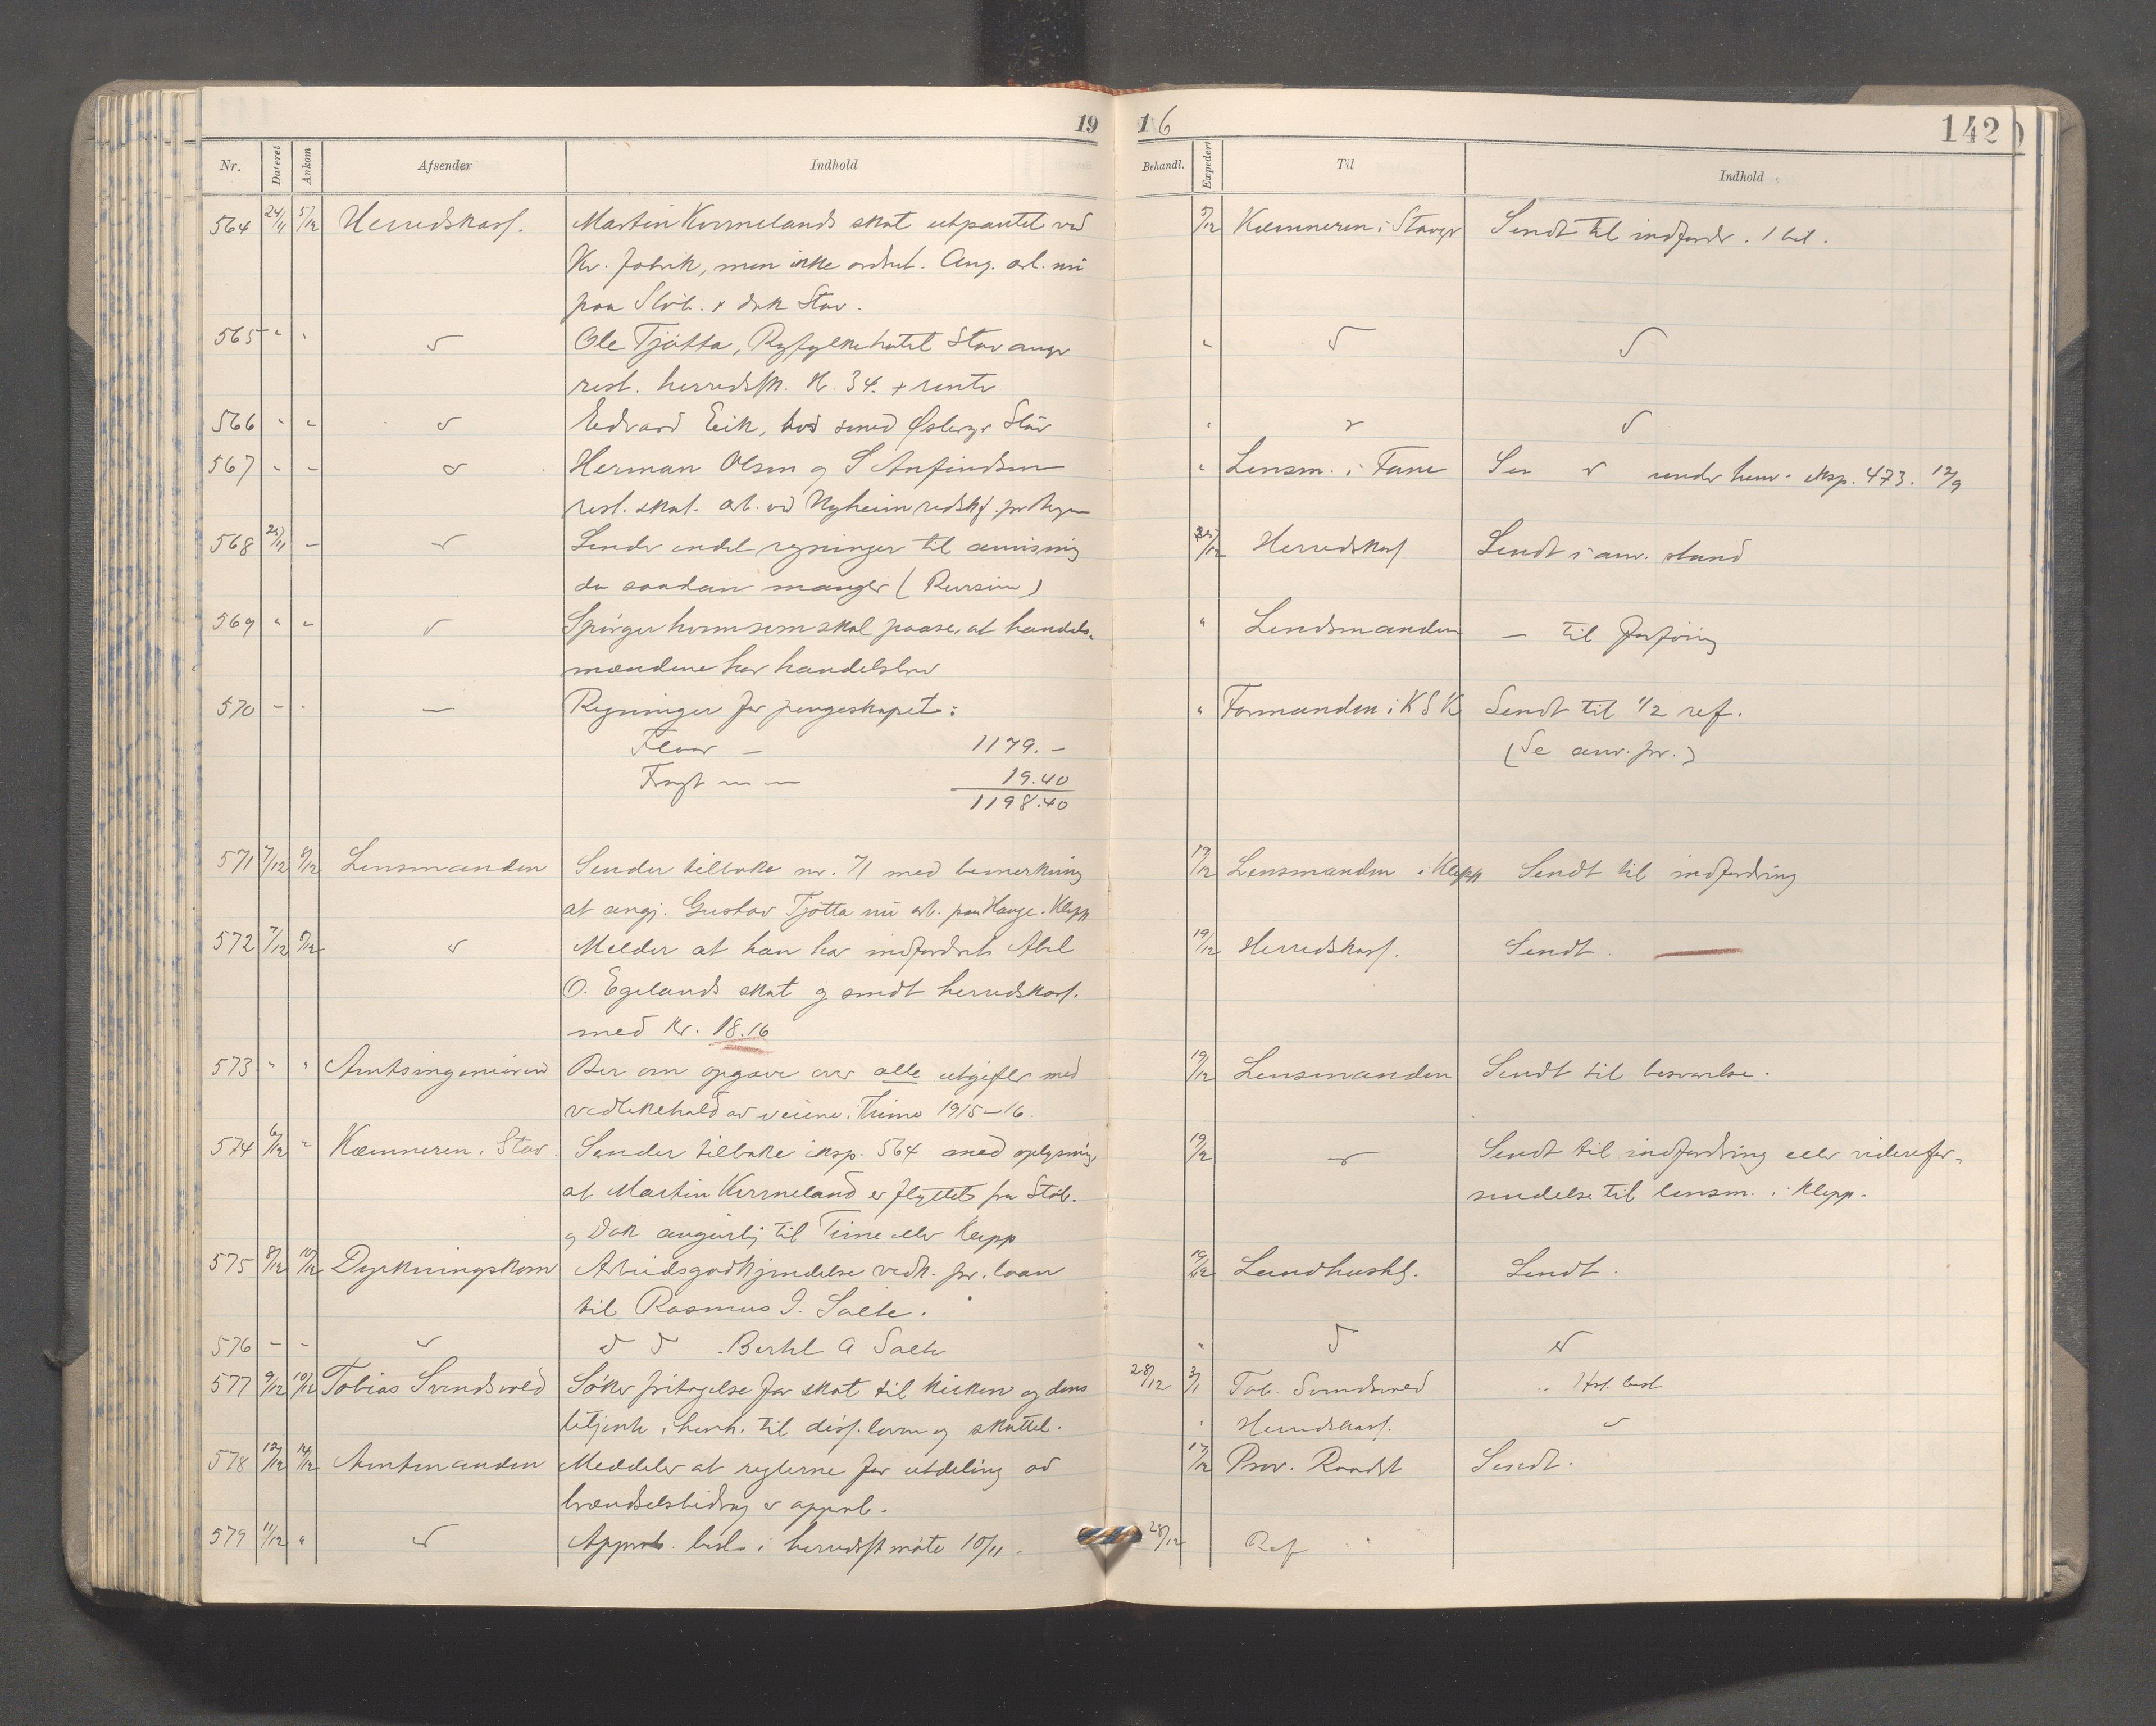 19 16 142
Nr. Dateret Ankom Afsender Indhold Behandl. Expedert Til Indhold
564 24/11 5/12 Herredskass. Martin Kvernelands skat utpantet ved 5/12 Kæmneren i Stavgr Sendt til indfordr. 1 bil.
Kv. fabrik, men ikke Ang. arb. nu
paa Støb. & dok Stav.
565 " " Ole Tjøtta, Ryfylke hotel Stavanger "
rest. herredssk. kr. 34. + rente
566 " " Edvard Eik, hos smed Stav "
567 " " Herman Olsen og S Anfindsen " Lensm. i Fane under henv. eksp. 473. 12/9
rest. skat. arb. ved Nyheim
568 25/11 - Sender endel regninger til anvisning Herredskass Sendt i anv. stand
da saadan mangler (Revision)
569 " " Spørger hvem som skal paase, at handels- " Lendsmanden — til
mændene har handelsbrev
570 - - — Regninger for pengeskapet: " Formanden i K S K Sendt til 1/2 ref.
1179.— (Se anv. pr.)
Fragt — — 19.40
1198.40
571 7/12 8/12 Lensmanden Sender tilbake nr. 71 med bemerkning 19/12 Lensmanden i Klepp Sendt til indfordring
at angj. Gustav Tjøtta nu arb. paa Hauge. Klepp
572 7/12 8/12 Melder at han har indfordret Abel 19/12 Herredskass. Sendt.
O. Egelands skat og sendt herredskass.
med kr. 18.16
573 " " Amtsingeniøren Ber om opgave over alle utgifter med 19/12 Lensmanden Sendt til besvarelse.
vedlikehold av veiene i Time 1915–16.
574 6/12 " Kæmneren i Stav. Sender tilbake eksp. 564 med oplysning 19/12 Sendt til indfordring eller viderefor-
at Martin Kverneland er flyttet fra Støb. sendelse til lensm. i Klepp.
og Dok angivelig til Time eller Klepp
575 8/12 10/12 Dyrkningskom Arbeidsgodkjendelse vedk. pr. laan 19/12 Landhushs. Sendt.
til Rasmus J. Salte.
576 - - Bertel A Salte "
577 9/12 10/12 Tobias Svendsvold Søker fritagelse for skat til kirken og dens 28/12 3/1 Tob. Svendsvold
betjente i henh. til diss. loven og skattel. " Herredskass.
578 12/12 14/12 Amtmanden Meddeler at reglerne for utdeling av 17/12 Prov. Sendt.
brændselsbidrag er approb.
579 11/12 " Approb. besl. i herredsst møte 10/11. 28/12 Ref